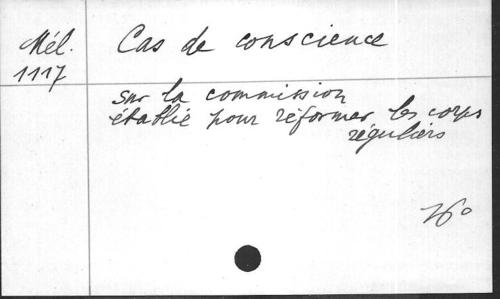 Mél.
1117
Cas de conscience
sur la commission
établie pour réformer les corps
réguliers